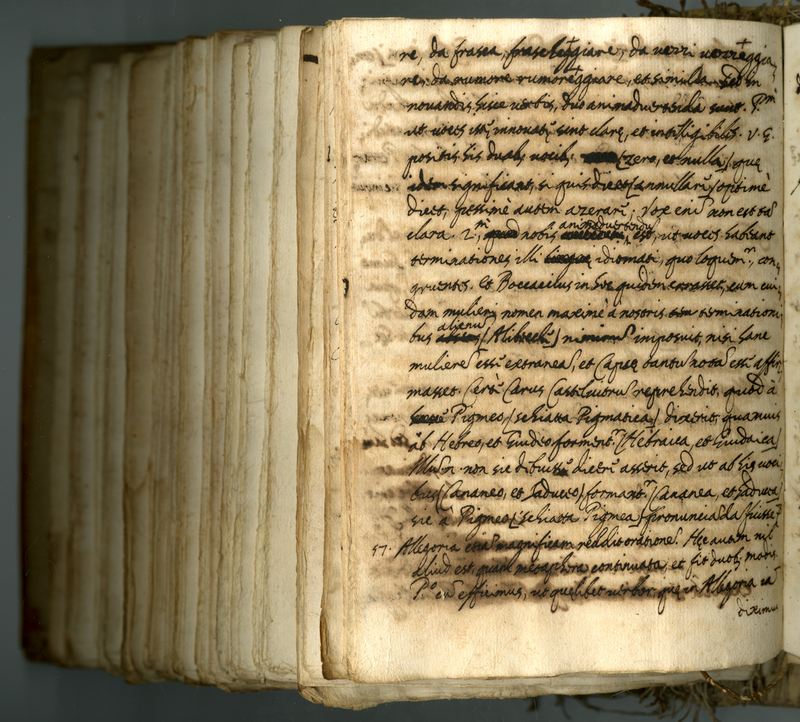 re, da frasca, frascheggiare, da vezzi vezzeggia
re, da rumore rumoreggiare, et similia. Sed in
novandis hisce verbis, duo animadvertenda sunt. Pm
ut voces istę innovatę sint clarę, et intelligibiles. V. G.
positis his duabus vocibus (zero, et nulla), quę
idem significant, si quis dicet (annullare) optimè
dicet, pessimè autem azerare; vox enim non est ta
clara. 2m nobis animadvertendum est, ut voces habeant
terminationes illi idiomati, quo loquemur, con
gruentes. Et Boccacius in hoc quidem errasset, cum cui
dam mulieri nomen maximè à nostris terminationi
bus alienum (Alibech) imposuit, nisi hanc
mulierem esse extraneam, et Capsę tantum notam esse affir
masset. Certè Carus Castelvetrum reprehendit, quod à
Pigmeo, (schiatta Pigmatica) dixerit, quamvis
ab Hebreo, et Giudeo formentur (Hebraica, et Giudaica)
Illud non sic debuisse dicere asserit, sed ut ab his voci
bus (Cananeo, et Saduceo) formantur (Cananea, et Saducea)
sic à Pigmeo (schiatta Pigmea) pronuncianda fuisset
57. Allegoria etiam magnificam reddit orationem. Hęc autem nil
aliud est, quam metaphora continuata, et fit duobus modis
Po cum efficimus, ut quęlibet verborum, quę in Allegoria ia
diximus